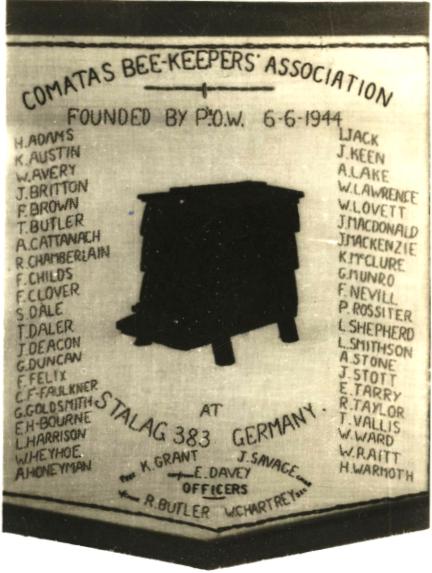 COMATAS BEE-KEEPERS' ASSOCIATION
FOUNDED BY P.O.W. 6-6-1944
H.ADAMS
K.AUSTIN
W.AVERY
J.BRITTON
F.BROWN
T.BUTLER
A.CATTANACH
R.CHAMBERLAIN
F.CHILDS
F.CLOVER
S.DALE
T.DALER
J.DEACON
G.DUNCAN
F.FELIX
C.F-FAULKNER
G.GOLDSMITH
E.H-BOURNE
L.HARRISON
W.HEYHOE
A.HONEYMAN
I.JACK
J.KEEN
A.LAKE
W.LAWRENCE
W.LOVETT
J.MACDONALD
J.MACKENZIE
K.McCLURE
G.MUNRO
F.NEVILL
P.ROSSITER
L.SHEPHERD
L.SMITHSON
A.STONE
J.STOTT
E.TARRY
R.TAYLOR
T.VALLIS
W.WARD
W.RAITT
H.WARMOTH
AT
STALAG 383 GERMANY.
K.GRANT J.SAVAGE
E.DAVEY
OFFICERS
R.BUTLER W.CHARTREY